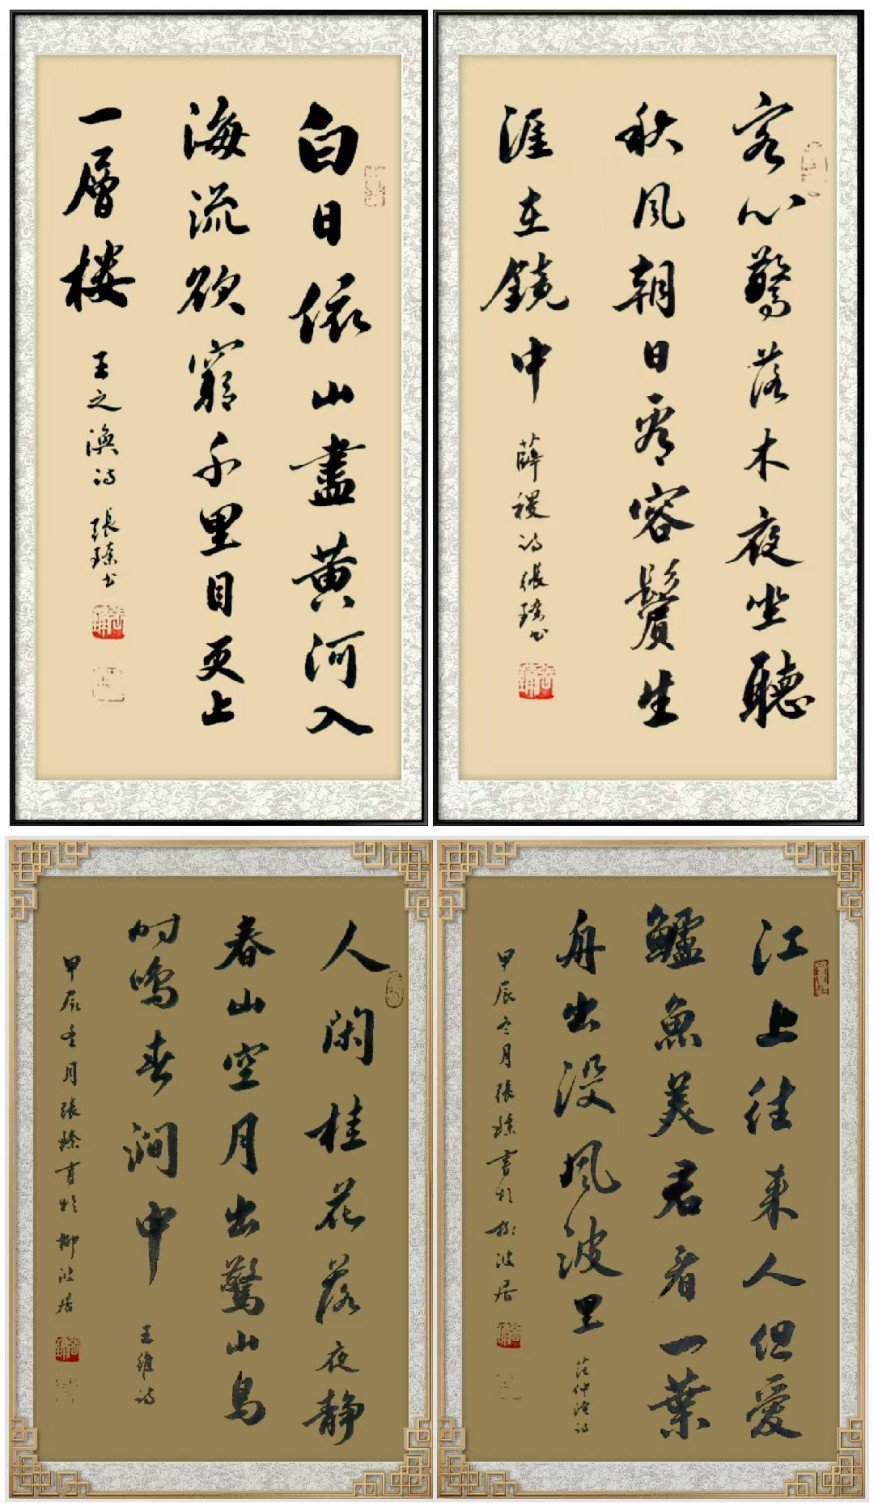 白日依山盡黄河入
海流欲窮千里目更上
一層楼 王之渙诗 張瑧书
客心驚落木夜坐聽
秋风朝日看容鬢生
涯在鏡中 薛稷诗張瑧书
人閑桂花落夜静
春山空月出驚山鳥
时鳴春澗中 王維诗
甲辰冬月張瑧書於柳波居
江上往来人但爱
鱸魚美君看一葉
舟出没风波里 范仲淹诗
甲辰冬月張瑧書於柳波居